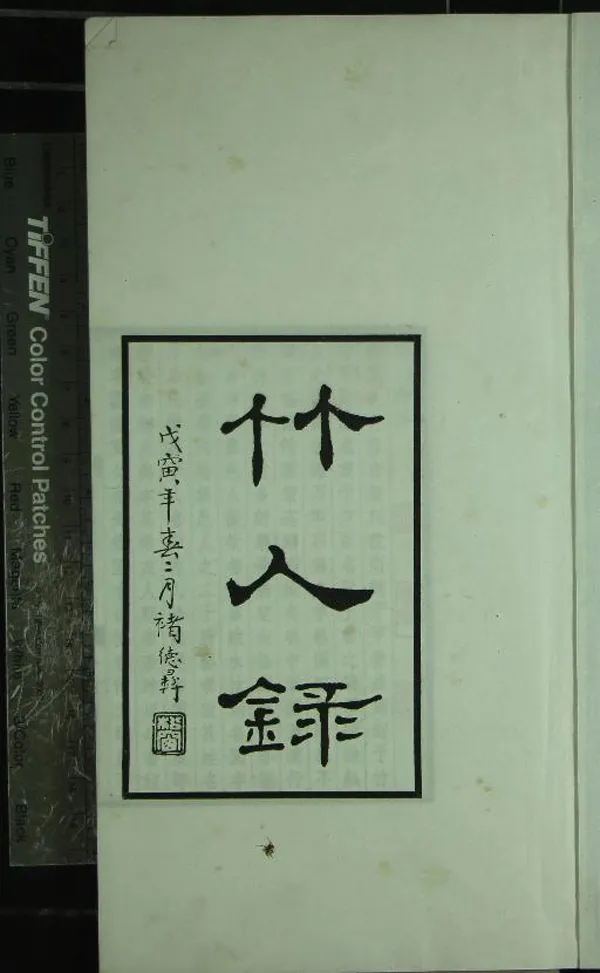 竹人錄
戊寅年春二月褚德彝
TIFFEN Color Control Patches
Blue
Cyan
Green
Yellow
Red
Magenta
White
3/Color
Black